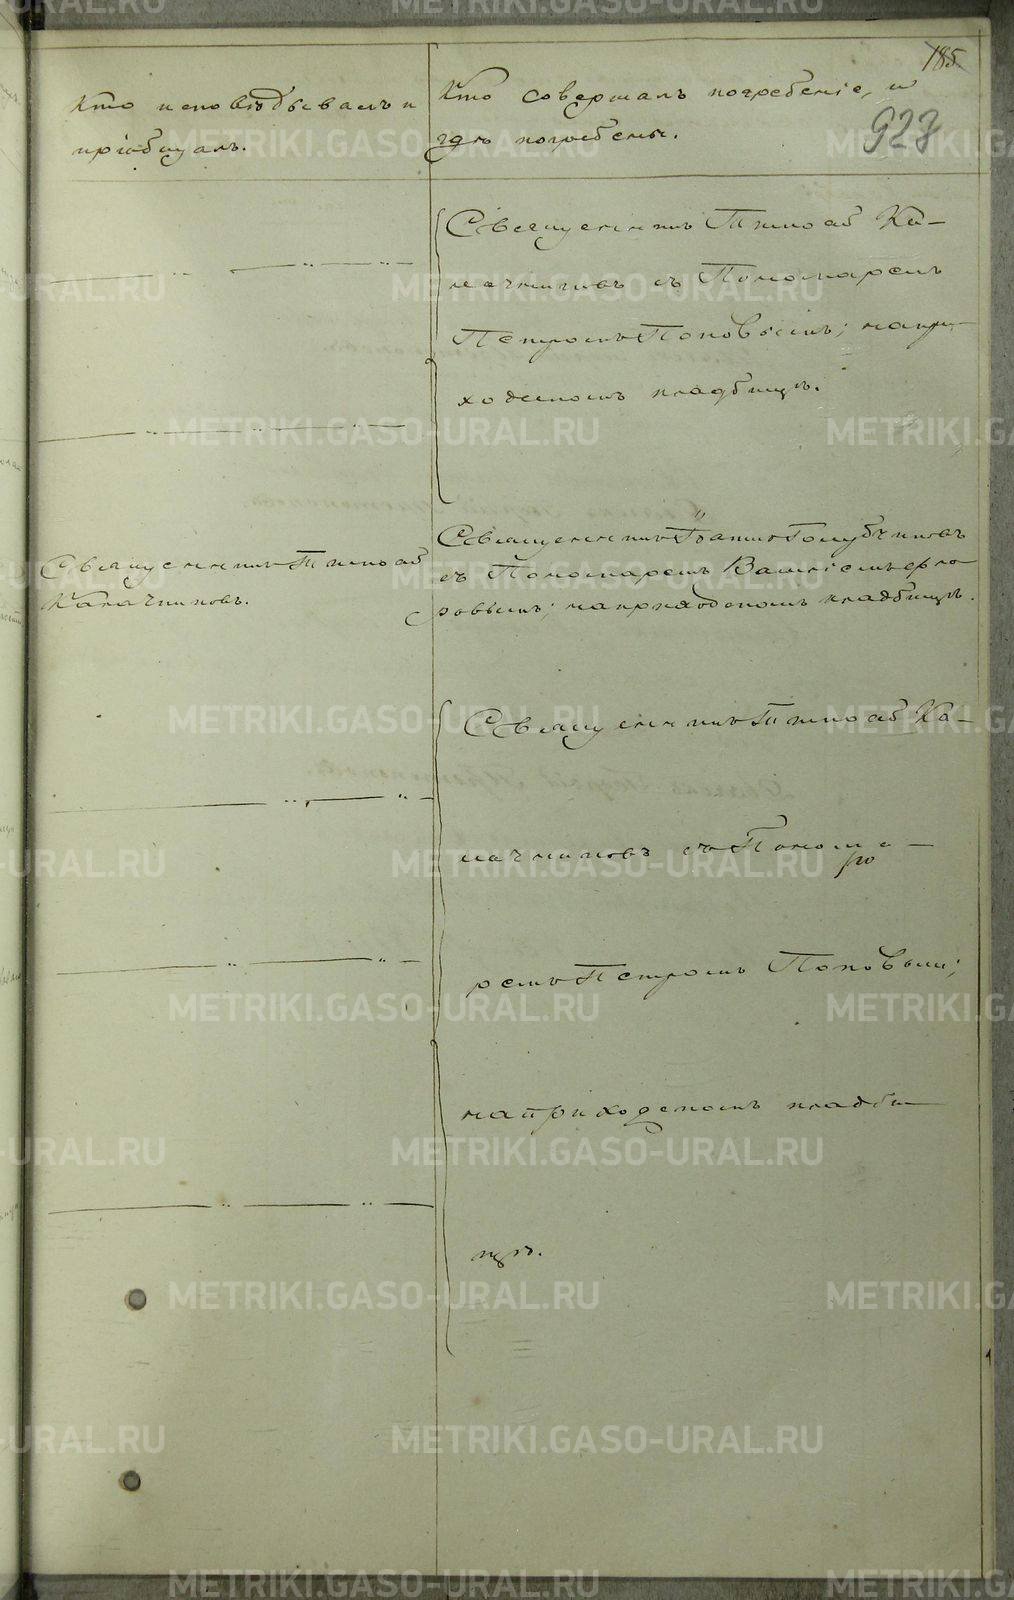 185
923
Кто исповѣдывалъ и
пріобщалъ.
Кто совершалъ погребеніе, и
гдѣ погребены.
Священникъ Тимоѳей Ка-
лачниковъ съ Пономаремъ
Петромъ Поповымъ; на при-
ходскомъ кладбищѣ.
Священникъ Тимоѳей
Калачниковъ.
Священникъ Іоаннъ Голубчиковъ
съ Пономаремъ
на приходскомъ кладбищѣ.
Священникъ Тимоѳей Ка-
лачниковъ съ Понома-
ремъ Петромъ Поповым;
на приходскомъ кладби-
щѣ.
METRIKI.GASO-URAL.RU